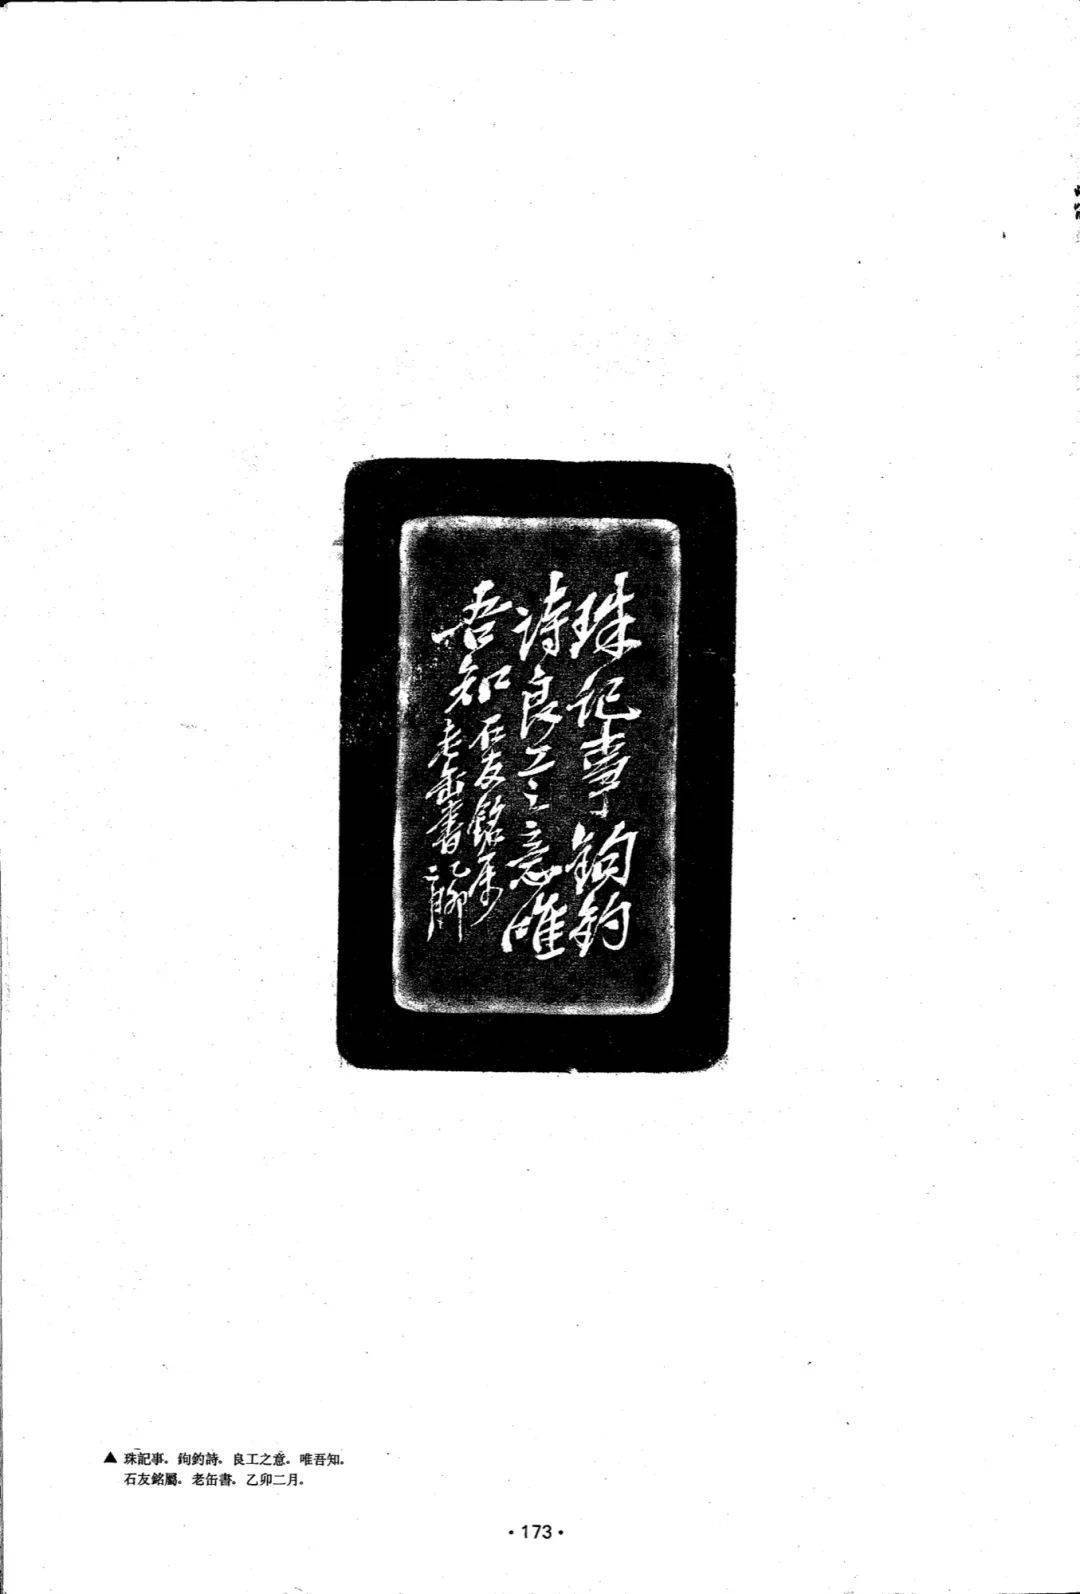 珠記事鉤釣
詩良工之意唯
吾知石友銘屬
老缶書乙卯
二月
▲珠記事。鉤釣詩。良工之意。唯吾知。
石友銘屬。老缶書。乙卯二月。
·173·